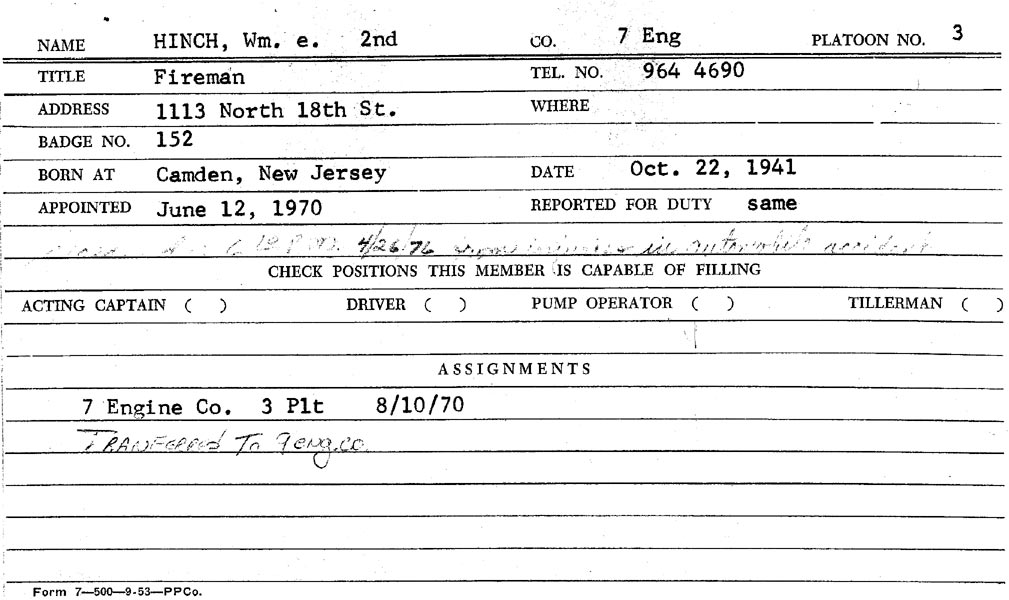 NAME HINCH, Wm. e. 2nd CO. 7 Eng PLATOON NO. 3
TITLE Fireman TEL. NO. 964 4690
ADDRESS 1113 North 18th St. WHERE
BADGE NO. 152
BORN AT Camden, New Jersey DATE Oct. 22, 1941
APPOINTED June 12, 1970 REPORTED FOR DUTY same
4/26/76 from injuries in automobile accident
CHECK POSITIONS THIS MEMBER IS CAPABLE OF FILLING
ACTING CAPTAIN ( ) DRIVER ( ) PUMP OPERATOR ( ) TILLERMAN ( )
ASSIGNMENTS
7 Engine Co. 3 Plt 8/10/70
TRANFERRED To 9 eng.co.
Form 7—500—9-53—PPCo.